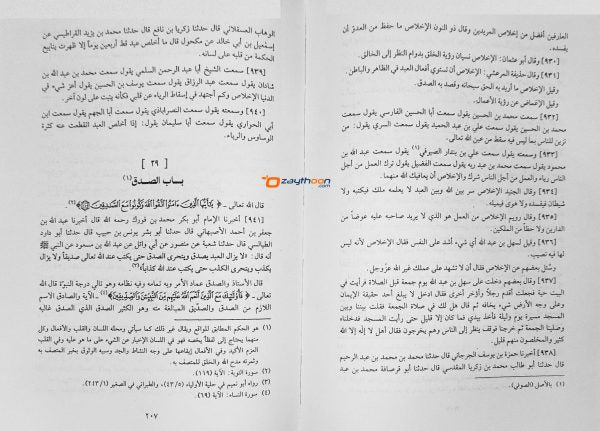 العارفين أفضل من إخلاص المريدين وقال ذو النون الإخلاص ما حفظ من العدوّ أن
يفسده.
[٩٣٠] وقال أبو عثمان: الإخلاص نسيان رؤية الخلق بدوام النظر إلى الخالق.
[٩٣١] وقال حذيفة المرعشي: الإخلاص أن تستوي أفعال العبد في الظاهر والباطن.
وقيل الإخلاص ما أريد به الحق سبحانه وقصد به الصدق.
وقيل الإغماض عن رؤية الأعمال.
[٩٣٢] سمعت محمد بن الحسين يقول سمعت أبا الحسين الفارسي يقول سمعت
محمد بن الحسين يقول سمعت علي بن عبد الحميد يقول سمعت السري يقول: من
تزين للناس بما ليس فيه سقط من عين الله تعالى.
[٩٣٣] وسمعته يقول سمعت علي بن بندار الصيرفي يقول سمعت عبد الله بن
محمود يقول سمعت محمد بن عبد ربه يقول سمعت الفضيل يقول ترك العمل من أجل
الناس رياء والعمل من أجل الناس شرك والإخلاص أن يعافيك الله منهما.
[٩٣٤] وقال الجنيد الإخلاص سر بين الله وبين العبد لا يعلمه ملك فيكتبه ولا
شيطان فيفسده ولا هوى فيميله.
[٩٣٥] وقال رويم الإخلاص من العمل هو الذي لا يريد صاحبه عليه عوضاً من
الدارين ولا حظاً من الملكين.
[٩٣٦] وقيل لسهل بن عبد الله أي شيء أشد على النفس فقال الإخلاص لأنه ليس
لها فيه نصيب.
وسئل بعضهم عن الإخلاص فقال أن لا تشهد على عملك غير الله عز وجل.
[٩٣٧] وقال بعضهم دخلت على سهل بن عبد الله يوم جمعة قبل الصلاة فرأيت في
البيت حية فجعلت أقدم رجلاً وأؤخر أخرى فقال ادخل لا يبلغ أحد حقيقة الإيمان
وعلى وجه الأرض شيء يخافه ثم قال هل لك في صلاة الجمعة فقلت بيننا وبين
المسجد مسيرة يوم وليلة فأخذ بيدي فما كان إلا قليل حتى رأيت المسجد فدخلناه
وصلينا الجمعة ثم خرجنا فوقف ينظر إلى الناس وهم يخرجون فقال أهل لا إله إلا الله
كثير والمخلصون منهم قليل.
[٩٣٨] أخبرنا حمزة بن يوسف الجرجاني قال حدثنا محمد بن محمد بن عبد الرحيم
قال حدثنا أبو طالب محمد بن زكريا المقدسي قال حدثنا أبو قرصافة محمد بن عبد
(١) بالأصل (الصوفي).
الوهاب العسقلاني قال حدثنا زكريا بن نافع قال حدثنا محمد بن يزيد القراطيسي عن
إسمعيل بن أبي خالد عن مكحول قال ما أخلص عبد قط أربعين يوماً إلا ظهرت ينابيع
الحكمة من قلبه على لسانه.
[٩٣٩] سمعت الشيخ أبا عبد الرحمن السلمي يقول سمعت محمد بن عبد الله بن
شاذان يقول سمعت عبد الرزاق يقول سمعت يوسف بن الحسين يقول أعز شيء في
الدنيا الإخلاص وكم أجتهد في إسقاط الرياء عن قلبي فكأنه ينبت على لون آخر.
[٩٤٠] وسمعته يقول سمعت النصراباذي يقول سمعت أبا الجهم يقول سمعت ابن
أبي الحواري يقول سمعت أبا سليمان يقول: إذا أخلص العبد انقطعت عنه كثرة
الوساوس والرياء.
[ ٢٩ ]
باب الصدق(١)
zaythoon.com
قال الله تعالى - ﴿يَٰٓأَيُّهَا ٱلَّذِينَ ءَامَنُوا۟ ٱتَّقُوا۟ ٱللَّهَ وَكُونُوا۟ مَعَ ٱلصَّٰدِقِينَ﴾(٢).
[٩٤١] أخبرنا الإمام أبو بكر محمد بن فورك رحمه الله قال أخبرنا عبد الله بن
جعفر بن أحمد الأصبهاني قال حدثنا أبو بشر يونس بن حبيب قال حدثنا أبو داود
الطيالسي قال حدثنا شعبة عن منصور عن أبي وائل عن عبد الله بن مسعود عن النبي ﷺ
أنه قال: «لا يزال العبد يصدق ويتحرى الصدق حتى يكتب عند الله تعالى صديقاً ولا يزال
يكذب ويتحرى الكذب حتى يكتب عند الله كذاباً»(٣).
قال الأستاذ والصدق عماد الأمر وبه تمامه وفيه نظامه وهو تالي درجة النبوة قال الله
تعالى - ﴿فَأُو۟لَٰٓئِكَ مَعَ ٱلَّذِينَ أَنْعَمَ ٱللَّهُ عَلَيْهِم مِّنَ ٱلنَّبِيِّۦنَ وَٱلصِّدِّيقِينَ﴾(٤) الآية والصادق الاسم
اللازم من الصدق والصدّيق المبالغة منه وهو الكثير الصدق الذي الصدق غالبه
(١) هو الحكم المطابق للواقع ويقال غير ذلك كما سيأتي ومحله اللسان والقلب والأفعال وكل
منهما يحتاج إلى لفظ يخصه فهو في اللسان الإخبار عن الشيء على ما هو عليه وفي القلب
العزم الأكيد وفي الأفعال إيقاعها على وجه النشاط والجد وسببه الوثوق بخبر المتصف به
وثمرته مدح الله والخلق للمتصف به.
(٢) سورة التوبة: الآية (١١٩).
(٣) رواه أبو نعيم في حلية الأولياء (٤٣/٥)، والطبراني في الصغير (٢٤٣/١).
(٤) سورة النساء: الآية (٦٩).
٢٠٧